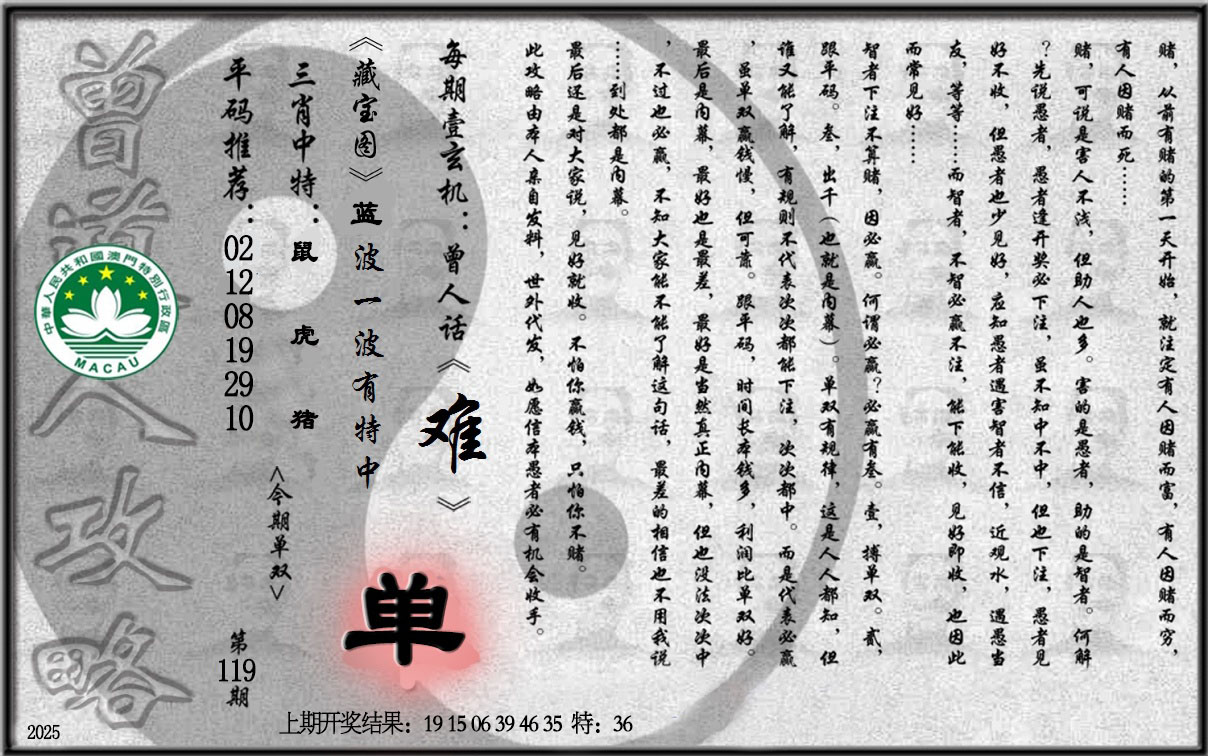 赌，从前有赌的第一天开始，就注定有人因赌而富，有人因赌而穷，
有人因赌而死……
赌，可说是害人不浅，但助人也多。害的是愚者，助的是智者。何解
？先说愚者，愚者逢开奖必下注，虽不知中不中，但也下注，愚者见
好不收，但愚者也少见好，应知愚者遇害智者不信，近观水，遇愚当
友，等等……而智者，不智必赢不注，能下能收，见好即收，也因此
而常见好……
智者下注不算赌，因必赢。何谓必赢？必赢有叁。壹，搏单双。贰，
跟平码。叁，出千（也就是内幕）。单双有规律，这是人人都知，但
谁又能了解，有规则不代表次次都能下注，次次都中。而是代表必赢
，虽单双赢钱慢，但可靠。跟平码，时间长本钱多，利润比单双好。
最后是内幕，最好也是最差，最好是当然真正内幕，但也没法次次中
，不过也必赢，不知大家能不能了解这句话，最差的相信也不用我说
……到处都是内幕。
最后还是对大家说，见好就收。不怕你赢钱，只怕你不赌。
此攻略由本人亲自发料，世外代发，如愿信本愚者必有机会收手。
每期壹玄机：曾人话《难》
《藏宝图》蓝波一波有特中
三肖中特：鼠 虎 猪
<今期单双>
单
平码推荐：02 12 08 19 29 10
第119期
曾道人攻略
中華人民共和國澳門特別行政區
MACAU
上期开奖结果：19 15 06 39 46 35 特：36
2025